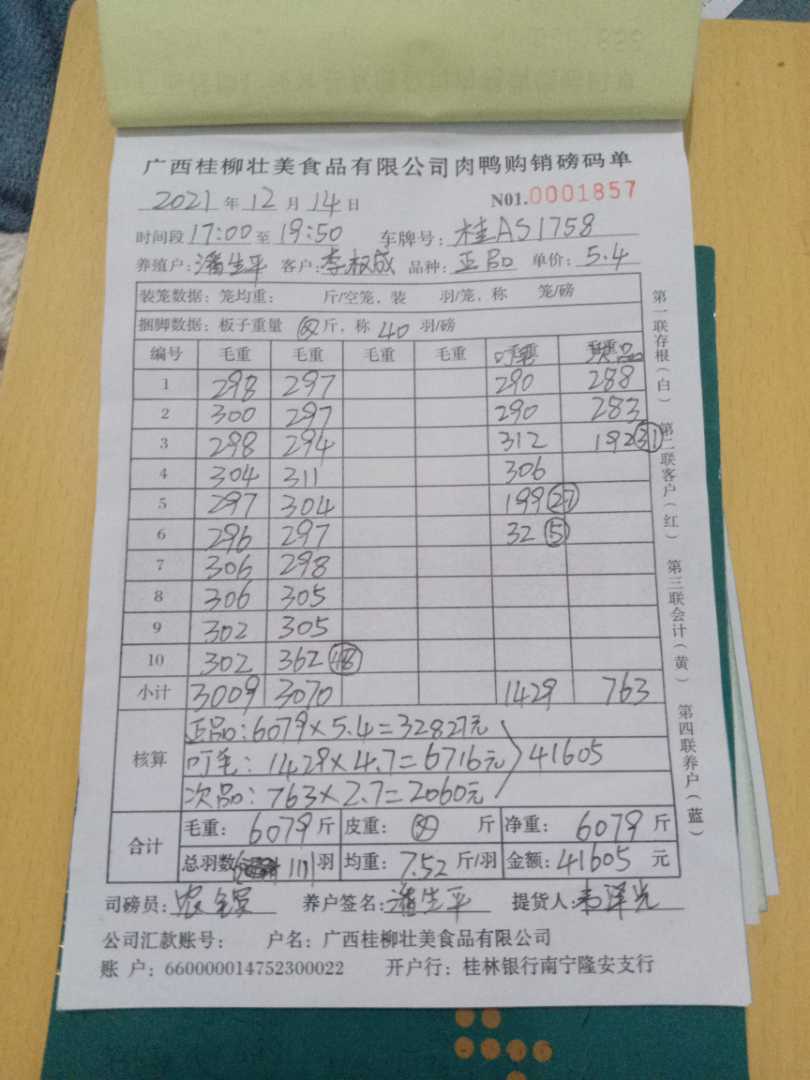 广西桂柳壮美食品有限公司肉鸭购销磅码单
2021年12月14日 N01.0001857
时间段17:00至19:50 车牌号:桂AS1758
养殖户:潘生平 客户:李权成 品种:正品 单价:5.4
装笼数据:笼均重: 斤/空笼,装 羽/笼,称 笼/磅
捆脚数据:板子重量 斤,称40羽/磅
编号 毛重 毛重 毛重 毛重 叮毛 次品
1 298 297 290 288
2 300 297 290 283
3 298 294 312 192 31
4 304 311 306
5 297 304 199 27
6 296 297 32 5
7 306 298
8 306 305
9 302 305
10 302 362 48
小计 3009 3070 1429 763
核算
正品:6079×5.4=32827元
叮毛:1429×4.7=6716元 41605
次品:763×2.7=2060元
合计
毛重:6079斤 皮重: 斤 净重:6079斤
总羽数 1111羽 均重:7.52斤/羽 金额:41605元
司磅员: 养户签名:潘生平 提货人:韦泽光
公司汇款账号: 户名:广西桂柳壮美食品有限公司
账 户:660000014752300022 开户行:桂林银行南宁隆安支行
第一联存根(白) 第二联客户(红) 第三联会计(黄) 第四联养户(蓝)